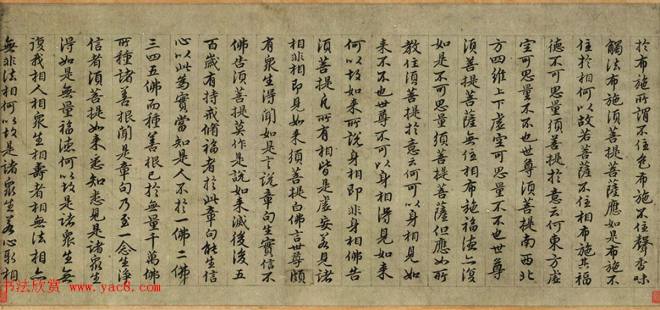 於布施所謂不住色布施不住聲香味
觸法布施須菩提菩薩應如是布施不
住於相何以故若菩薩不住相布施其福
德不可思量須菩提於意云何東方虛
空可思量不不也世尊須菩提南西北
方四維上下虛空可思量不不也世尊
須菩提菩薩無住相布施福德亦復
如是不可思量須菩提菩薩但應如所
教住須菩提於意云何可以身相見如
来不不也世尊不可以身相得見如来
何以故如来所說身相即非身相佛告
須菩提凡所有相皆是虛妄若見諸
相非相即見如来須菩提白佛言世尊頗
有衆生得聞如是言說章句生實信不
佛告須菩提莫作是說如来滅後後五
百歲有持戒脩福者於此章句能生信
心以此為實當知是人不於一佛二佛
三四五佛而種善根已於無量千萬佛
所種諸善根聞是章句乃至一念生淨
信者須菩提如来悉知悉見是諸衆生
得如是無量福德何以故是諸衆生無
復我相人相衆生相壽者相無法相亦
無非法相何以故是諸衆生若心取相
书法欣赏
www.yac8.com